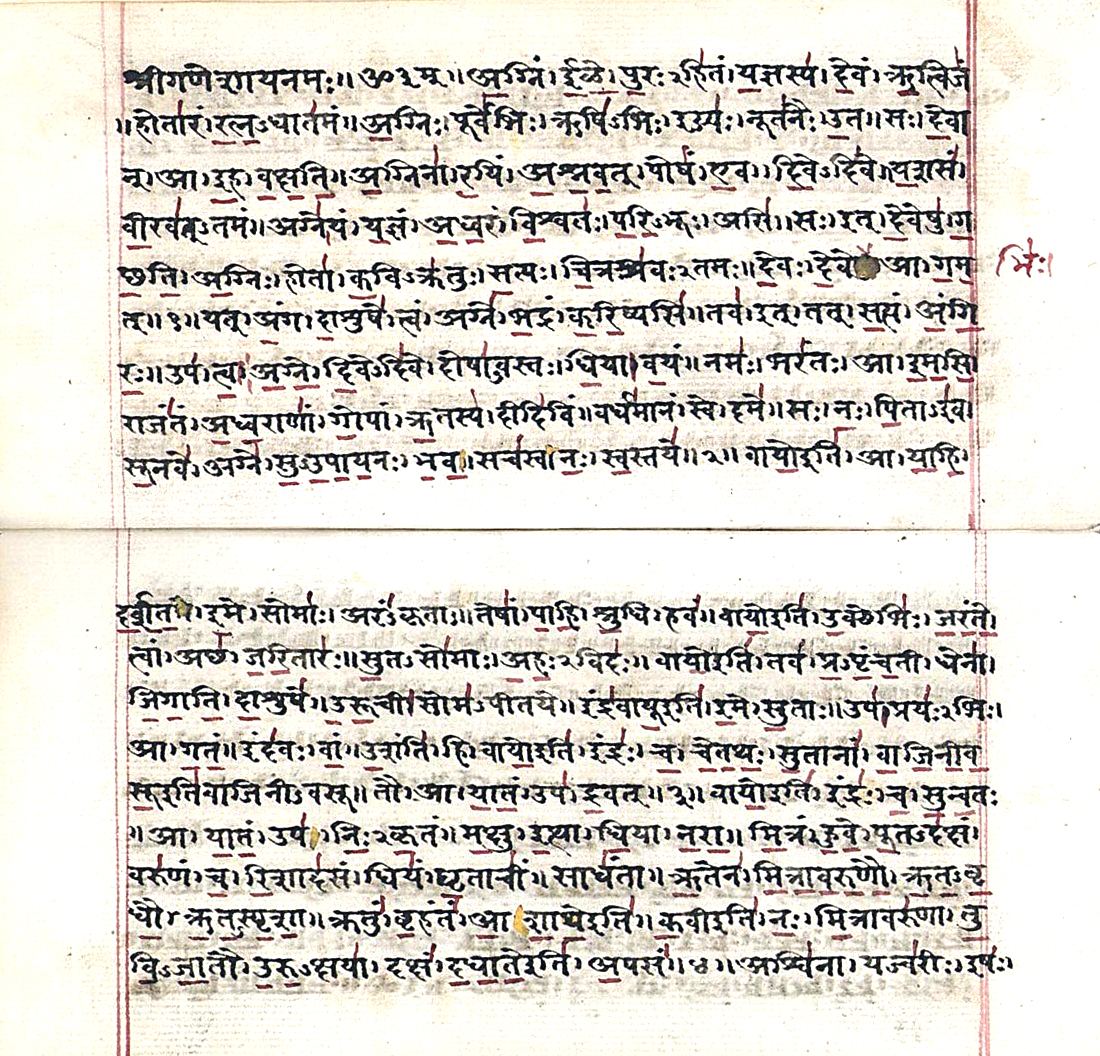 श्रीगणेशायनमः॥ ॐ३म्॥ अ॒ग्निं। ई॒ळे॒। पु॒रः२हि॑तं। य॒ज्ञस्य॑। दे॒वं। ऋ॒त्विजं॑
॥होता॑रं। र॒त्न॒ऽधात॑मं॥ अ॒ग्निः। पूर्वे॑भिः। ऋषि॑ऽभिः। ईड्यः॑। नूत॑नैः। उ॒त॥ सः। दे॒वा
न्। आ। इ॒ह। व॒क्ष॒ति॒॥ अ॒ग्निना॑। र॒यिं। अ॒श्न॒व॒त्। पोषं॑। ए॒व। दि॒वेऽदि॑वे॥ य॒शसं॑।
वी॒रव॑त्ऽतमं॥ अग्ने॑। यं। य॒ज्ञं। अ॒ध्व॒रं। वि॒श्वतः॑। प॒रि॒ऽभूः। असि॑॥ सः। इत्। दे॒वेषु॑। ग॒
च्छ॒ति॒। अ॒ग्निः। होता॑। क॒विऽक्र॑तुः। स॒त्यः। चि॒त्रश्र॑वः२तमः॥ दे॒वः। दे॒वे आ। ग॒म॒ भिः॑।
त्॥१॥ यत्। अं॒ग। दा॒शुषे॑। त्वं। अग्ने॑। भ॒द्रं। क॒रि॒ष्यसि॑॥ तव॑। इत्। तत्। स॒त्यं। अं॒गि॒
रः॒॥ उप॑। त्वा॒। अ॒ग्ने॒। दि॒वेऽदि॑वे। दोषा॑ऽवस्तः। धि॒या। व॒यं॥ नमः॑। भरं॑तः। आ। इ॒म॒सि॒।
राजं॑तं। अ॒ध्व॒राणां॑। गो॒पां। ऋ॒तस्य॑। दीदि॑विं॥ वर्ध॑मानं। स्वे। दमे॑॥ सः। नः॒। पि॒ताऽइ॑व।
सू॒नवे॑। अग्ने॑। सु॒ऽउ॒पा॒य॒नः। भ॒व॒॥ सच॑स्व। नः॒। स्व॒स्तये॑॥२॥ वायो॒इति॑। आ। या॒हि॒।
द॒र्श॒त॒। इ॒मे। सोमाः॑। अरं॑ऽकृताः॥ तेषां॑। पा॒हि॒। श्रु॒धि। हवं॑॥ वायो॒इति॑। उ॒क्थेभिः॑। ज॒रं॒ते॒।
त्वां। अच्छ॑। ज॒रि॒तारः॑॥ सु॒तऽसो॑माः। अ॒हः॒२विदः॑॥ वायो॒इति॑। तव॑। प्र॒ऽपृं॒च॒ती। धेना॑।
जि॒गा॒ति॒। दा॒शुषे॑॥ उ॒रू॒ची। सोम॑ऽपीतये॥ इंद्र॑वायू॒इति॑। इ॒मे। सु॒ताः॥ उप॑। प्रयः॑२भिः।
आ। ग॒तं॒॥ इंद॑वः। वां॒। उ॒शंति॑। हि। वायो॒इति॑। इंद्रः॑। च॒। चे॒त॒थः॒। सु॒तानां॑। वा॒जि॒नी॒व॒
सू॒इति॑वाजिनीऽवसू॥ तौ। आ। या॒तं॒। उप॑। द्र॒वत्॥३॥ वायो॒इति॑। इंद्रः॑। च॒। सु॒न्व॒तः
॥आ। या॒तं॒। उप॑। निः॒२कृ॒तं॥ म॒क्षु। इ॒त्था। धि॒या। न॒रा॒॥ मि॒त्रं। हु॒वे॒। पू॒तऽद॑क्षं।
वरु॑णं। च॒। रि॒शाद॑सं। धियं॑। घृ॒ताचीं॑॥ साधं॑ता॥ ऋ॒तेन॑। मि॒त्रा॒व॒रु॒णौ॒। ऋ॒त॒ऽवृ॒
धौ॒। ऋ॒त॒ऽस्पृ॒शा॒॥ क्रतुं॑। बृ॒हंतं॑। आ॒शा॒थे॒इति॑॥ क॒वीइति॑। नः॒। मि॒त्रावरु॑णा। तु॒
वि॒ऽजा॒तौ। उ॒रु॒ऽक्षया॑। दक्षं॑। द॒धा॒ते॒इति॑। अ॒पसं॑॥४॥ अश्वि॑ना। यज्व॑रीः। इषः॑।